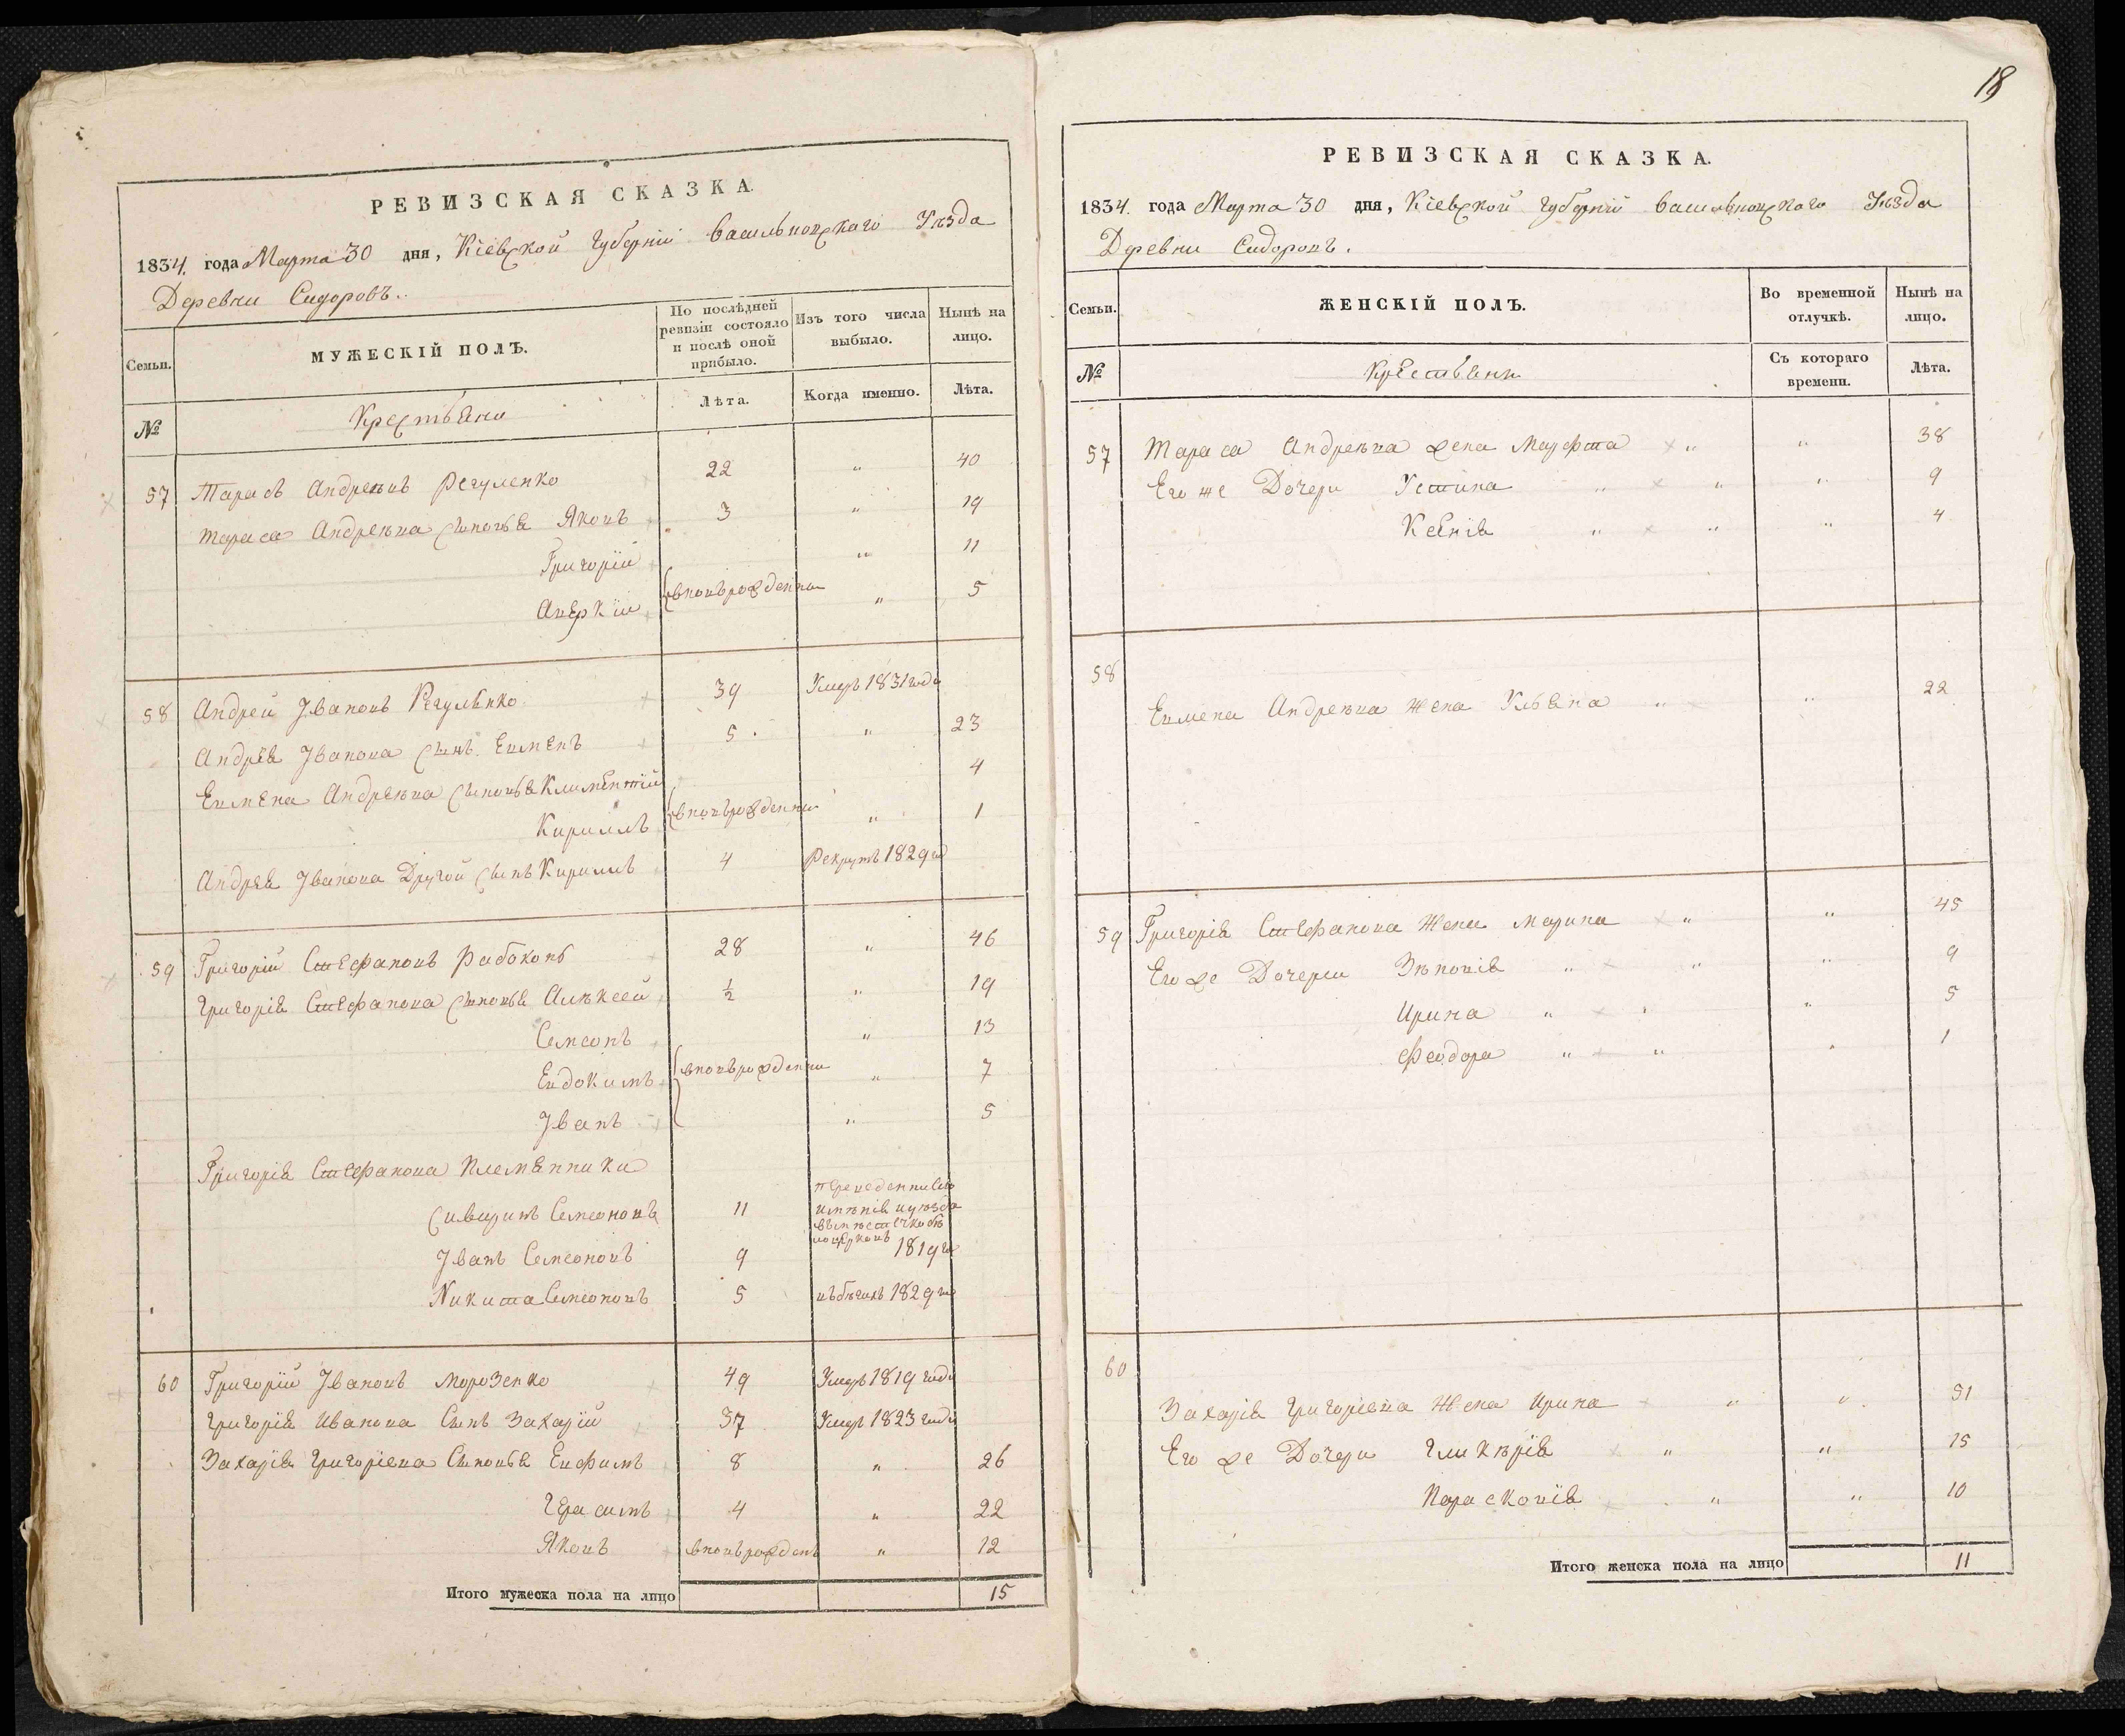 РЕВИЗСКАЯ СКАЗКА.
1834. года Марта 30 дня, Кіевской Губерніи Васильковскаго Уѣзда
Деревни Сидоровъ.
Семьи.
МУЖЕСКІЙ ПОЛЪ.
По послѣдней ревизіи состояло и послѣ оной прибыло.
Изъ того числа выбыло.
Нынѣ на лицо.
№
Крестьяни
Лѣта.
Когда именно.
Лѣта.
57 Тарасъ Андреевъ Регуленко 22 " 40
Тараса Андреева сыновья Яковъ 3 " 19
Григорій " 11
Аверкій вновьрожденни " 5
58 Андрей Ивановъ Регуленко 39 Умеръ 1831 года
Андрея Иванова сынъ Евменъ 5 " 23
Евмена Андреева сыновья Климентій 4
Кириллъ вновьрожденни " 1
Андрея Иванова Другой сынъ Кириллъ 4 Рекрутъ 1829 го
59 Григорій Стефановъ Рабоконь 28 " 46
Григорія Стефанова сыновья Алѣксей ½ " 19
Семеонъ " 13
Евдокимъ вновьрожденни " 7
Иванъ " 5
Григорія Стефанова Племянники
Сиверинъ Семеоновъ 11
Иванъ Семеоновъ 9 1819 го
Никита Семеоновъ 5 въ бѣгахъ 1829 го
60 Григорій Ивановъ Морозенко 49 Умеръ 1819 года
Григорія Иванова Сынъ Захарій 37 Умеръ 1823 года
Захарія Григоріева Сыновья Евфимъ 8 " 26
Герасимъ 4 " 22
Яковъ вновьрожденъ " 12
Итого мужеска пола на лицо 15
18
РЕВИЗСКАЯ СКАЗКА.
1834. года Марта 30 дня, Кіевской Губерніи Васильковскаго Уѣзда
Деревни Сидоровъ.
Семьи.
ЖЕНСКІЙ ПОЛЪ.
Во временной отлучкѣ.
Нынѣ на лицо.
№
Крестьяни
Съ котораго времени.
Лѣта.
57 Тараса Андреева жена Марфта " " 38
Его же Дочери Устина " " " 9
Ксенія " " " 4
58
Евмена Андреева жена Ульяна " " 22
59 Григорія Стефанова Жена Марина " " 45
Его же Дочери Зѣновія " " " 9
Ирина " " " 5
Феодора " " " 1
60
Захарія Григоріева Жена Ирина " " 51
Его же Дочери Гликѣрія " " 15
Парасковія " " 10
Итого женска пола на лицо 11